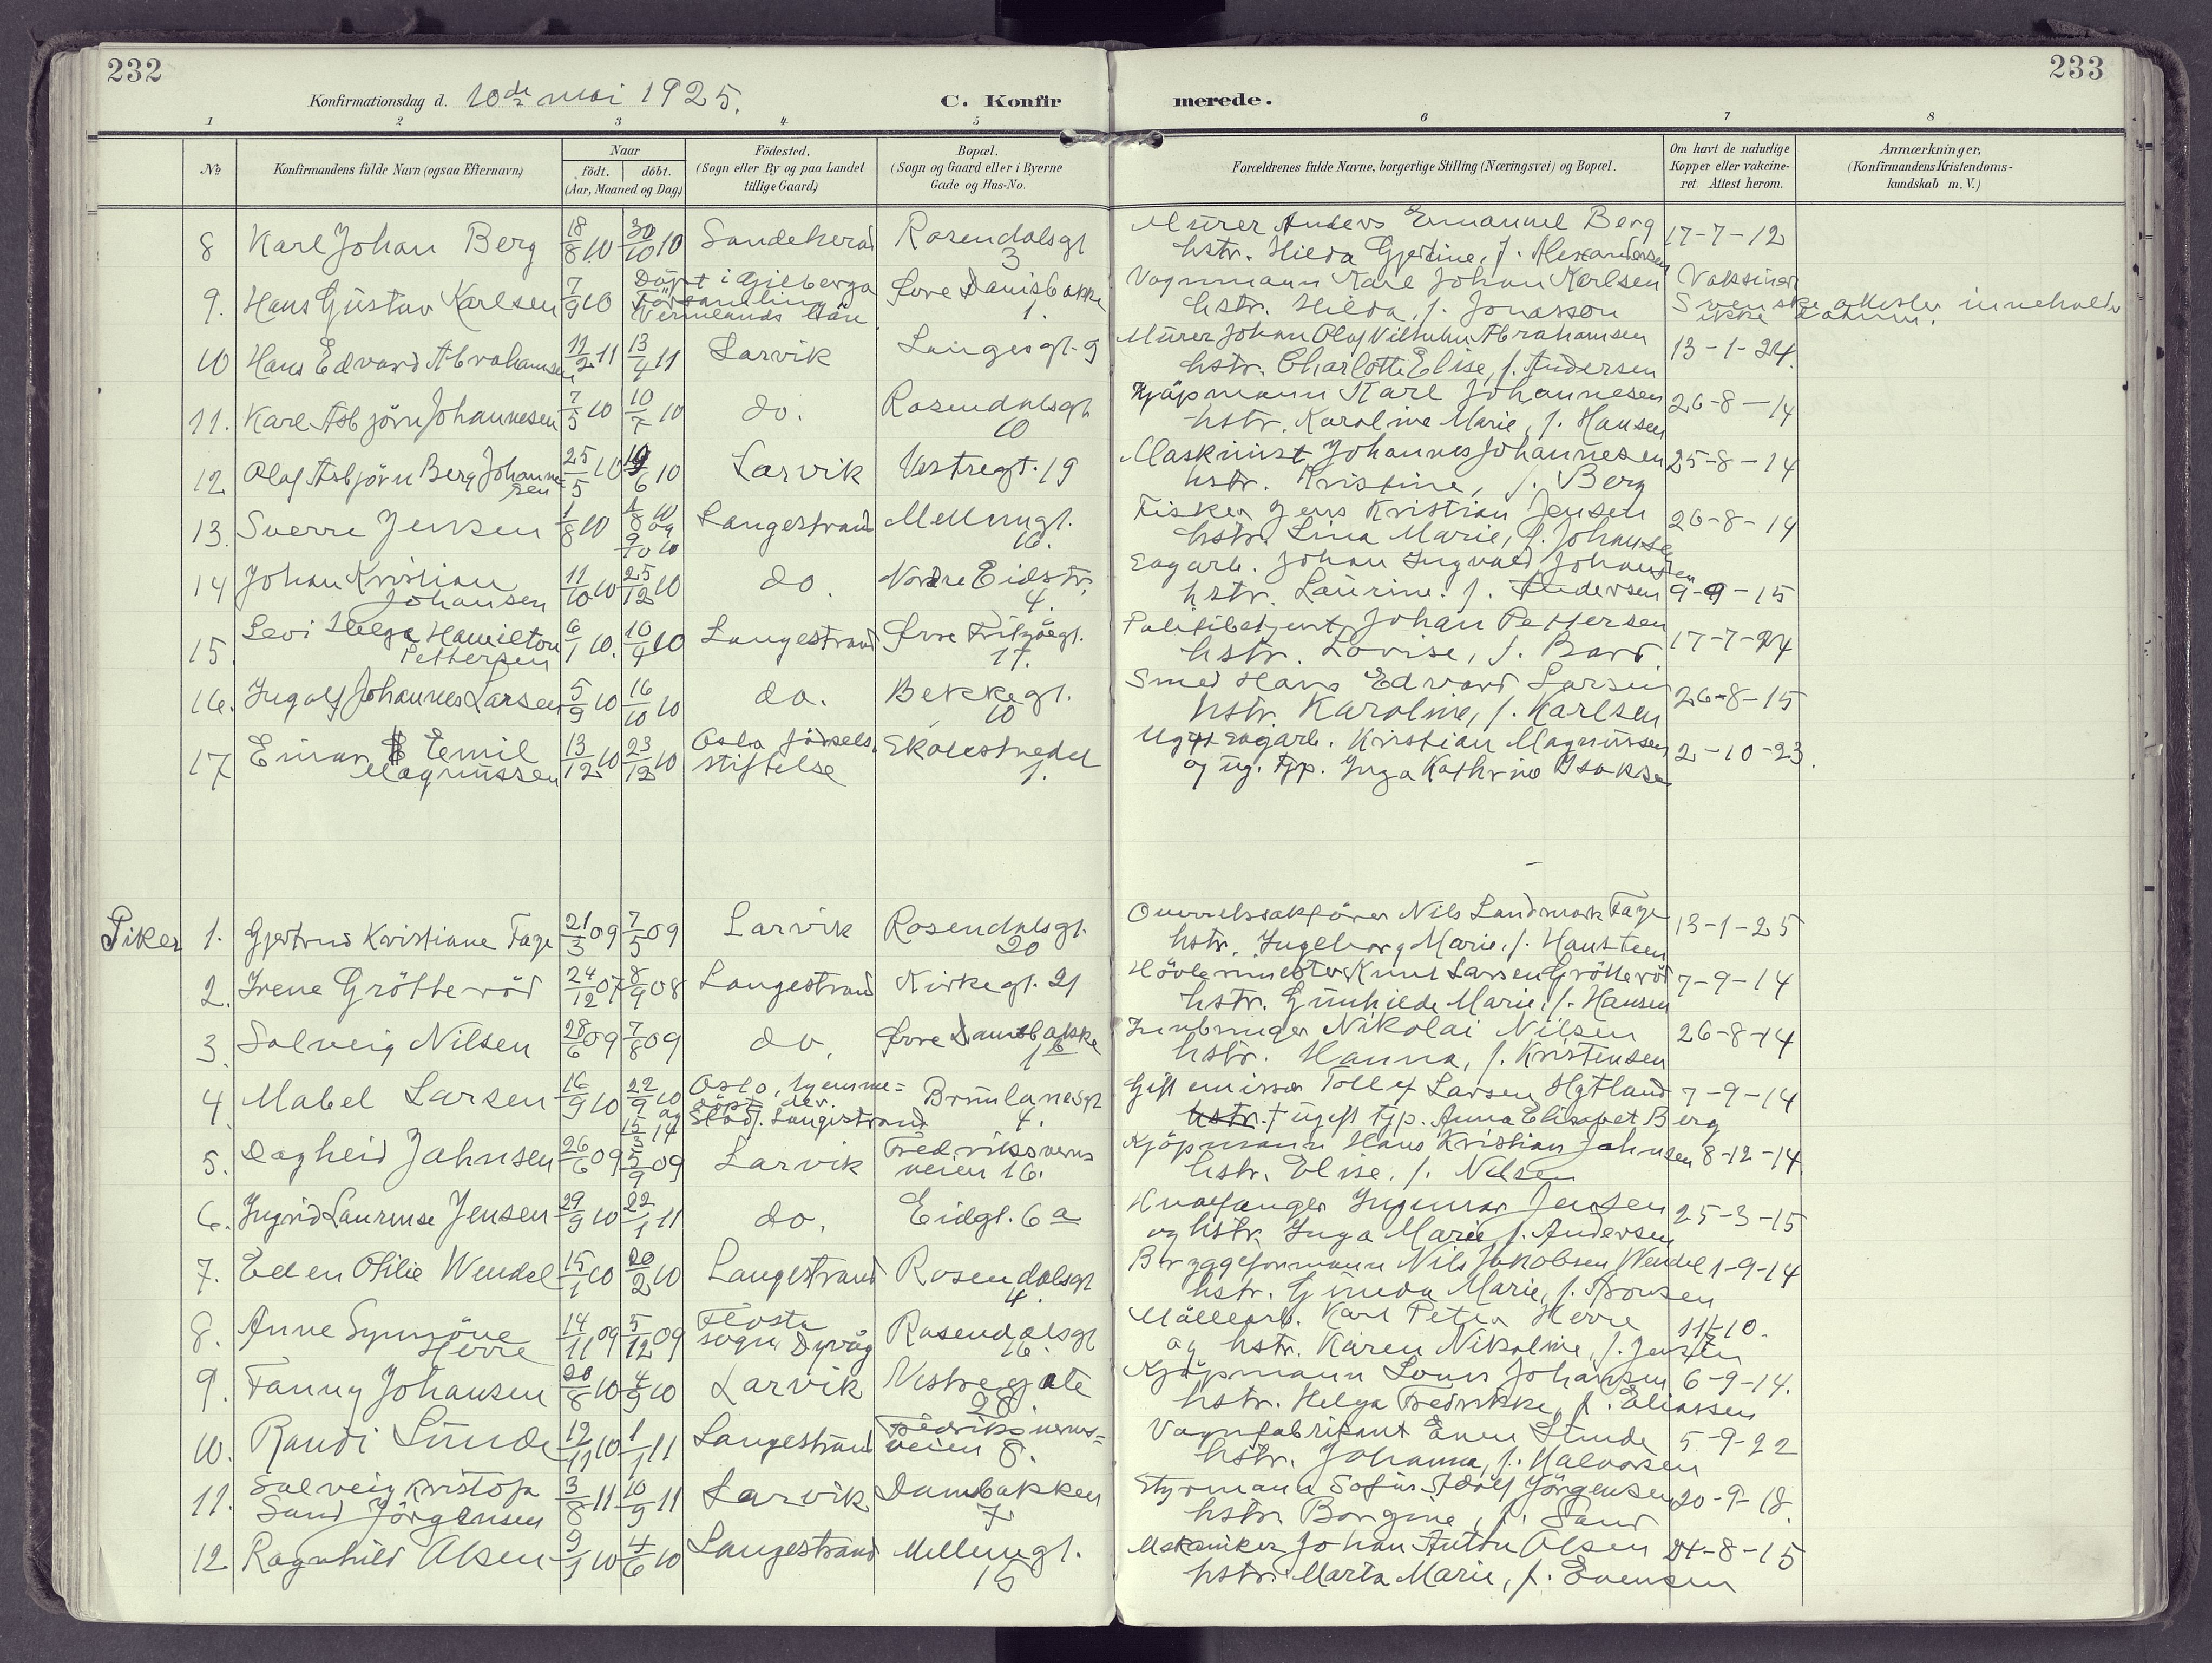 232
233
Konfirmationsdag d. 10de mai 1925.
C. Konfirmerede.
1 2 3 4 5 6 7 8
No
Konfirmandens fulde Navn (ogsaa Efternavn)
Naar
födt. döbt.
(Aar, Maaned og Dag)
Födested.
(Sogn eller By og paa Landet
tillige Gaard)
Bopæl.
(Sogn og Gaard eller i Byerne
Gade og Hus-No.
Forældrenes fulde Navne, borgerlige Stilling (Næringsvei) og Bopæl.
Om havt de naturlige
Kopper eller vakcine-
ret Attest herom.
Anmærkninger,
(Konfirmandens Kristendoms-
kundskab m. V.)
8 Karl Johan Berg 18/8 10 30/10 10 Sandeherad Rosendalsgt 3 Murer Anders Emanuel Berg 17-7-12
hstr. Hilda Gjertine, f. Alexandersen
9. Hans Gustav Karlsen 7/9 10 Döpt i Gilberga Församling Vermlands län Øvre Damsbakke 1. Vognmann Karl Johan Karlsen Vaksiner
hstr. Hilda, f. Jonasson Svenske attester inneholder ikke datum.
10 Hans Edvard Abrahamsen 11/2 11 13/4 11 Larvik Langesgt. 9 Murer Johan Olaf Vilhelm Abrahamsen 13-1-24.
hstr. Charlotte Elise, f. Andersen
11. Karl Asbjörn Johannesen 7/5 10 10/7 10 do. Rosendalsgt 10 Kjöpmann Karl Johannesen 26-8-14
hstr. Karoline Marie, f. Hansen
12 Olaf Asbjörn Berg Johannesen 25/5 10 19/6 10 Larvik Vestregt. 19 Maskinist Johannes Johannesen 25-8-14
hstr. Kristine, f. Berg
13. Sverre Jensen 1/8 10 1/8 10 og 9/10 10 Langestrand Mellemgt. 16. Fisker Jens Kristian Jensen 26-8-14
hstr. Lina Marie, f. Johansen
14 Johan Kristian Johansen 11/10 10 25/12 10 do. Nordre Eidstr. 4. Sagarb. Johan Ingvald Johansen 9-9-15
hstr. Laurine. f. Andersen
15. Levi Helge Hamilton Pettersen 6/1 10. 10/4 10 Langestrand Øvre Fritzöegt. 17. Politibetjent Johan Pettersen 17-7-24
hstr. Lovise, f. Bard.
16. Ingolf Johannes Larsen 5/9 10 16/10 10 do. Bekkegt. 10 Smed Hans Edvard Larsen 26-8-15
hstr. Karoline, f. Karlsen
17 Einar Emil Magnussen 13/12 10 23/12 10 Oslo födsels. stiftelse Skolestredet 1. Ugift sagarb. Kristian Magnussen 2-10-23.
og ug. tjp. Inga Kathrine Isaksen
Piker
1. Gjertrud Kristiane Fage 21/3 09 7/5 09 Larvik Rosendalsgt. 20 Overretssakförer Nils Landmark Fage 13-1-25
hstr. Ingeborg Marie, f. Hansteen
2. Irene Grötteröd 24/12 07 8/9 08 Langestrand Kirkegt. 21 Hövlerimester Knut Larsen Grötteröd 7-9-14
hstr. Gunhilde Marie, f. Hansen
3. Solveig Nilsen 28/6 09 7/8 09 do. Øvre Damsbakke 1 b Nikolai Nilsen 26-8-14
hstr. Hanna, f. Kristensen
4. Mabel Larsen 16/9 10 22/9 10 og 15/3 14 Oslo, hjemme= döpt der. Stadf. Langestrand Brunlanesgt 4. Gift emissær Tollef Larsen Hytland 7-9-14
hstr. † ugift tjp. Anna Elisabet Berg
5. Dagheid Jahnsen 26/6 09 5/9 09 Larvik Fredriksverns veien 16. Kjöpmann Hans Kristian Jahnsen 8-12-14
hstr. Elise. f. Nilsen
6. Ingrid Laurense Jensen 29/9 10 22/1 11 do. Eidgt. 6 a Hvalfanger Ingmar Jensen 25-3-15
og hstr Inga Marie f. Andersen
7. Ellen Otilie Wendel 15/1 10 20/2 10 Langestrand Rosendalsgt 4. Bryggeformann Nils Jakobsen Wendel 1-9-14
hstr. Gunda Marie, f.
8. Anne Synnöve Herre 14/11 09 5/12 09 Flosta sogn Dyvåg Rosendalsgt 16. Möllearb. Karl Peter Herre 11/7-10.
og hstr. Karen Nikoline, f. Jensen
9. Fanny Johansen 20/8 10 4/9 10 Larvik Vestregate 28. Kjöpmann Louis Johansen 6-9-14.
hstr. Helga Fredrikke, f. Eliassen
10. Randi Lunde 12/11 10 1/1 11 Langestrand Fredriksverns= veien 8. Vognfabrikant Even Lunde 5-9-22
hstr. Johanna, f. Halvorsen
11. Solveig Kristofa Sand Jörgensen 3/8 11 10/9 11 Larvik Dambakken 7. Styrmann Sofus Adolf Jörgensen 20-9-18.
hstr. Borgine, f. Sand
12 Ragnhild Olsen 9/1 10 4/6 10 Langestrand Mellemgt. 15 Mekaniker Johan Anton Olsen 24-8-15
hstr. Marta Marie, f. Evensen